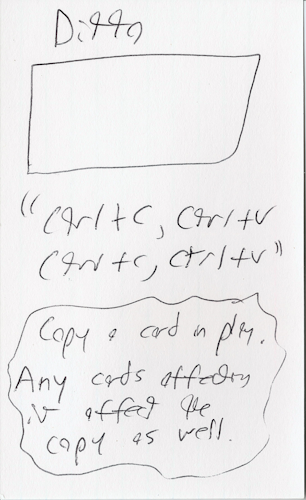 Ditto
"Ctrl+C, Ctrl+V
Ctrl+C, Ctrl+V"
Copy a card in play.
Any cards affecting
it affect the
copy as well.